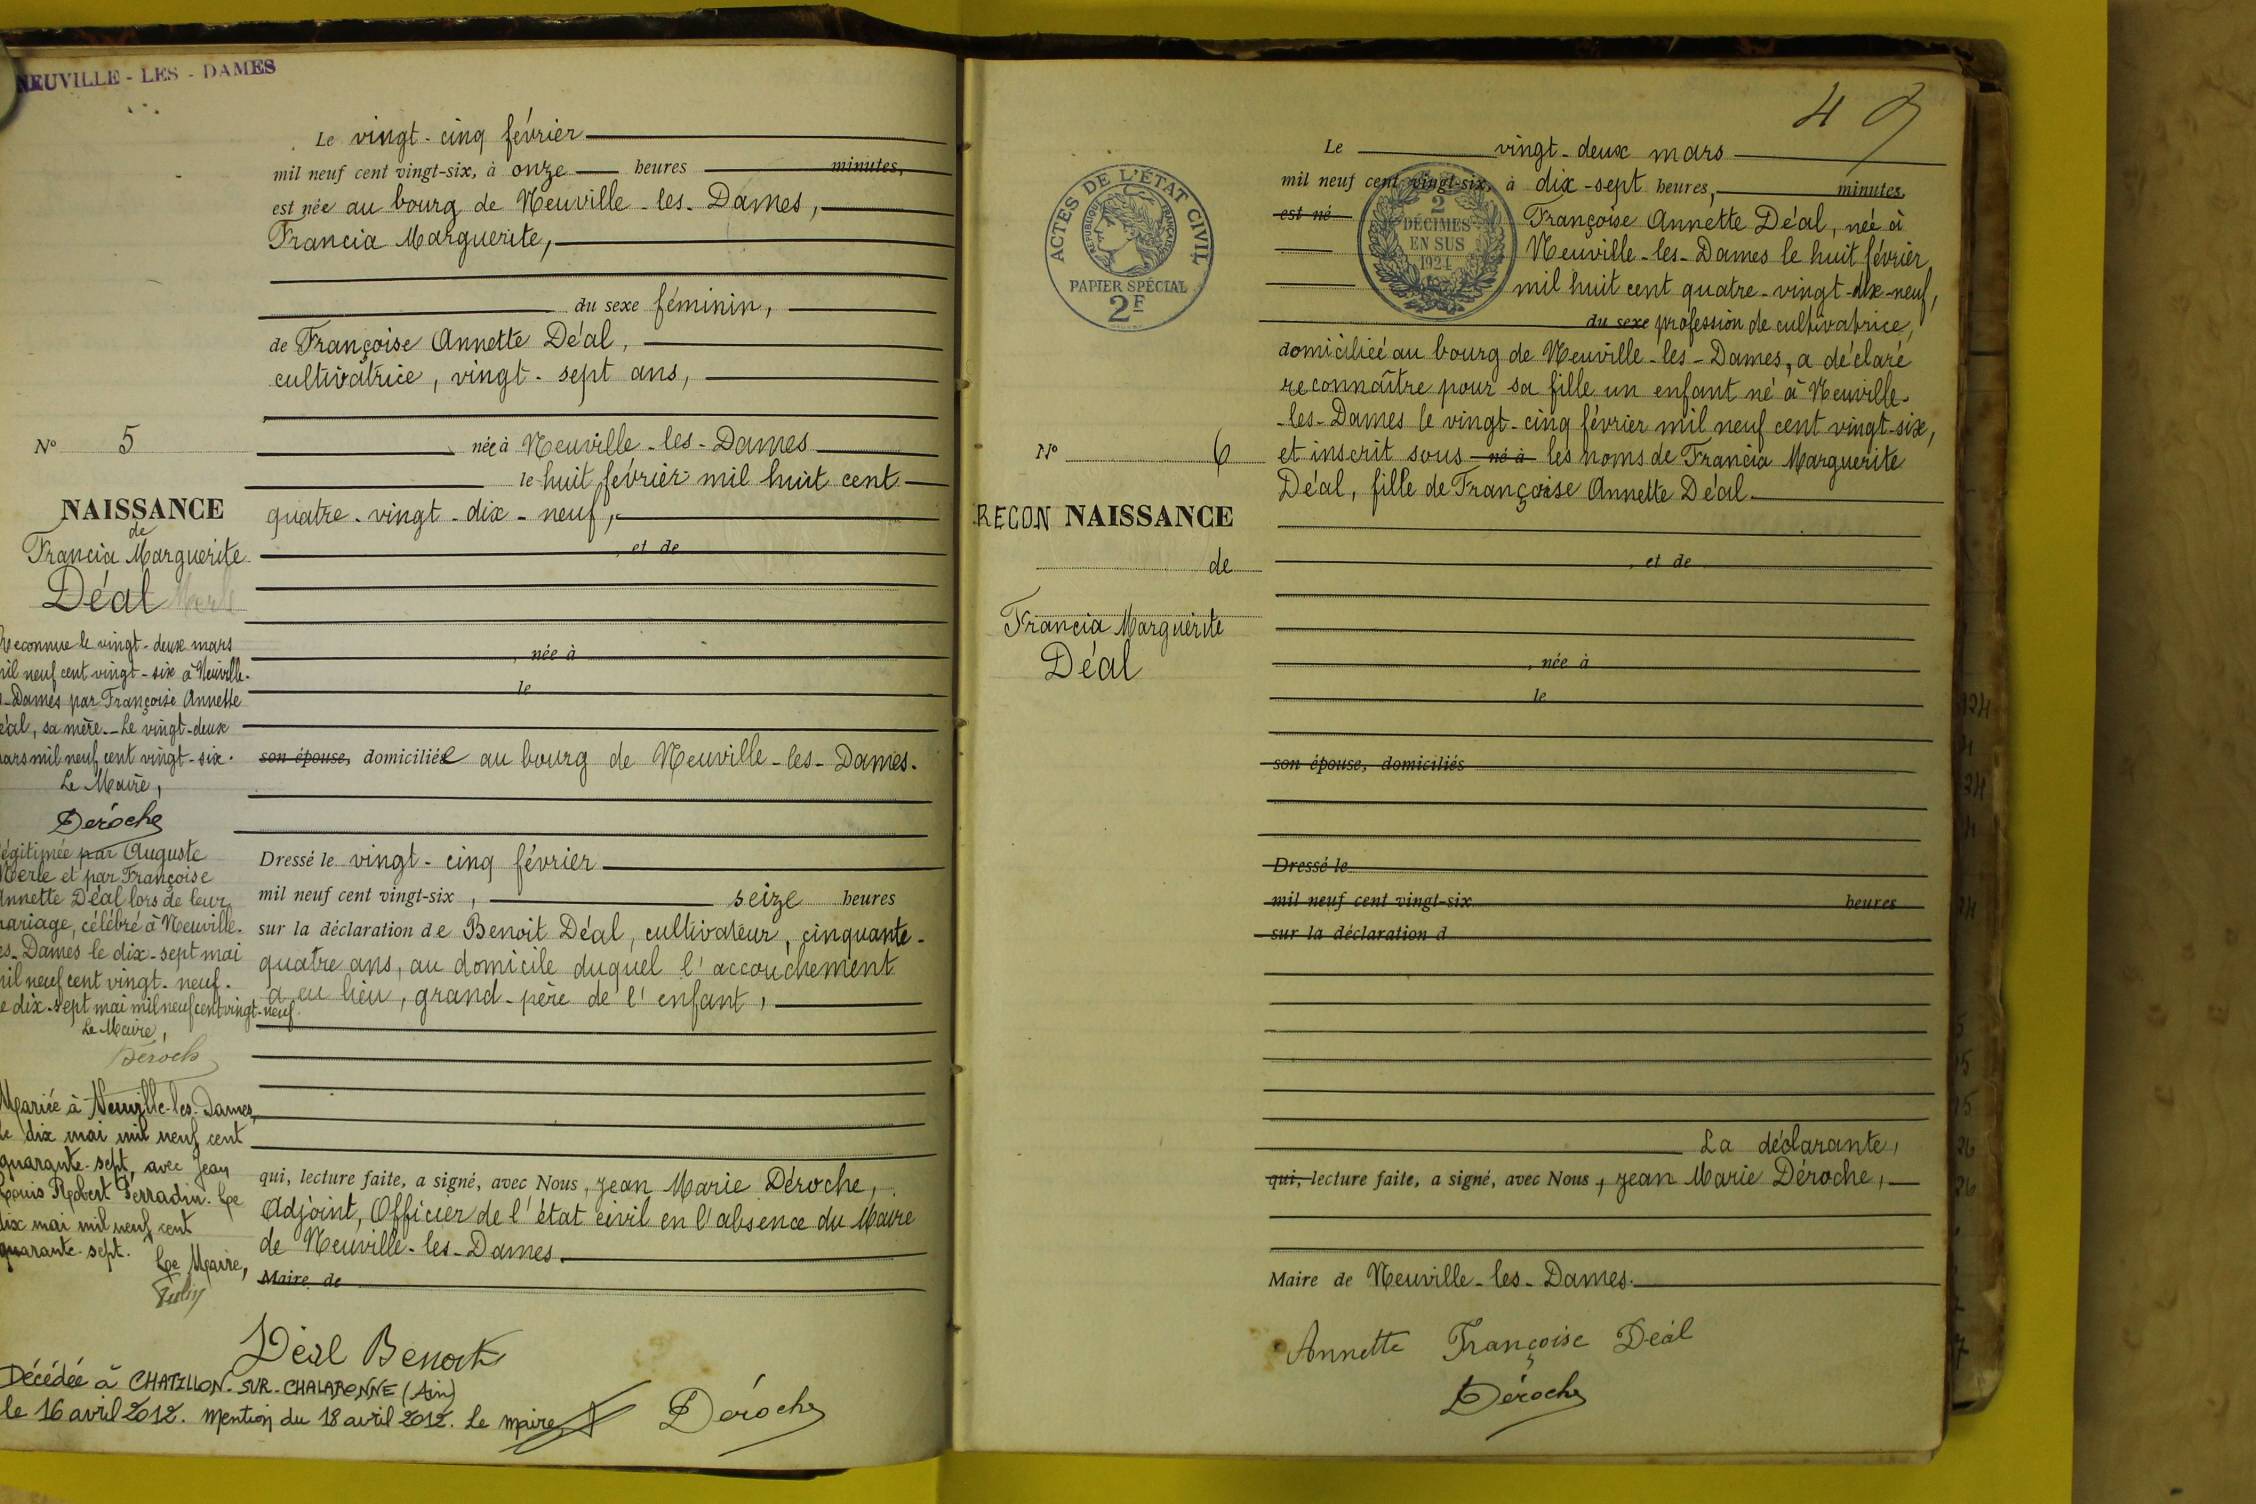 NEUVILLE - LES - DAMES
Le vingt-cinq février
mil neuf cent vingt-six, à onze heures minutes,
est née au bourg de Neuville-les-Dames,
Francia Marguerite,
du sexe féminin,
de Françoise Annette Déal,
cultivatrice, vingt-sept ans,
née à Neuville-les-Dames
le huit février mil huit cent
quatre-vingt-dix-neuf,
, et de
, née à
le
son épouse, domiciliée au bourg de Neuville-les-Dames.
Dressé le vingt-cinq février
mil neuf cent vingt-six, seize heures
sur la déclaration de Benoit Déal, cultivateur, cinquante-
quatre ans, au domicile duquel l'accouchement
a eu lieu, grand-père de l'enfant,
qui, lecture faite, a signé, avec Nous, Jean Marie Déroche,
Adjoint, Officier de l'état civil en l'absence du Maire
de Neuville-les-Dames.
Maire de
Déal Benoit
Déroche
N° 5
NAISSANCE
de
Francia Marguerite
Déal Merle
Reconnue le vingt-deux mars
mil neuf cent vingt-six à Neuville-
s-Dames par Françoise Annette
éal, sa mère. Le vingt-deux
ars mil neuf cent vingt-six.
Le Maire,
Déroche
égitimée par Auguste
Merle et par Françoise
Annette Déal lors de leur
ariage, célébré à Neuville-
es-Dames le dix-sept mai
mil neuf cent vingt-neuf.
e dix-sept mai mil neuf cent vingt-neuf
Le Maire,
Déroche
Mariée à Neuville-les-Dames,
le dix mai mil neuf cent
quarante-sept, avec Jean
Louis Robert Perradin. Le
dix mai mil neuf cent
quarante-sept.
Le Maire,
Décédée à CHATILLON-SUR-CHALARONNE (Ain)
le 16 avril 2012. Mention du 18 avril 2012. Le maire
49
ACTES DE L'ÉTAT CIVIL
RÉPUBLIQUE FRANÇAISE
PAPIER SPÉCIAL
2F
2
DÉCIMES
EN SUS
1924
Le vingt-deux mars
mil neuf cent vingt-six, à dix-sept heures, minutes,
est né Françoise Annette Déal, née à
Neuville-les-Dames le huit février
mil huit cent quatre-vingt-dix-neuf,
du sexe profession de cultivatrice,
domiciliée au bourg de Neuville-les-Dames, a déclaré
reconnaître pour sa fille un enfant né à Neuville-
-les-Dames le vingt-cinq février mil neuf cent vingt-six,
et inscrit sous né à les noms de Francia Marguerite
Déal, fille de Françoise Annette Déal.
, et de
, née à
le
son épouse, domiciliés
Dressé le
mil neuf cent vingt-six heures
sur la déclaration d
La déclarante,
qui, lecture faite, a signé, avec Nous, Jean Marie Déroche,
Maire de Neuville-les-Dames.
Annette Françoise Déal
Déroche
N° 6
RECON NAISSANCE
de
Francia Marguerite
Déal